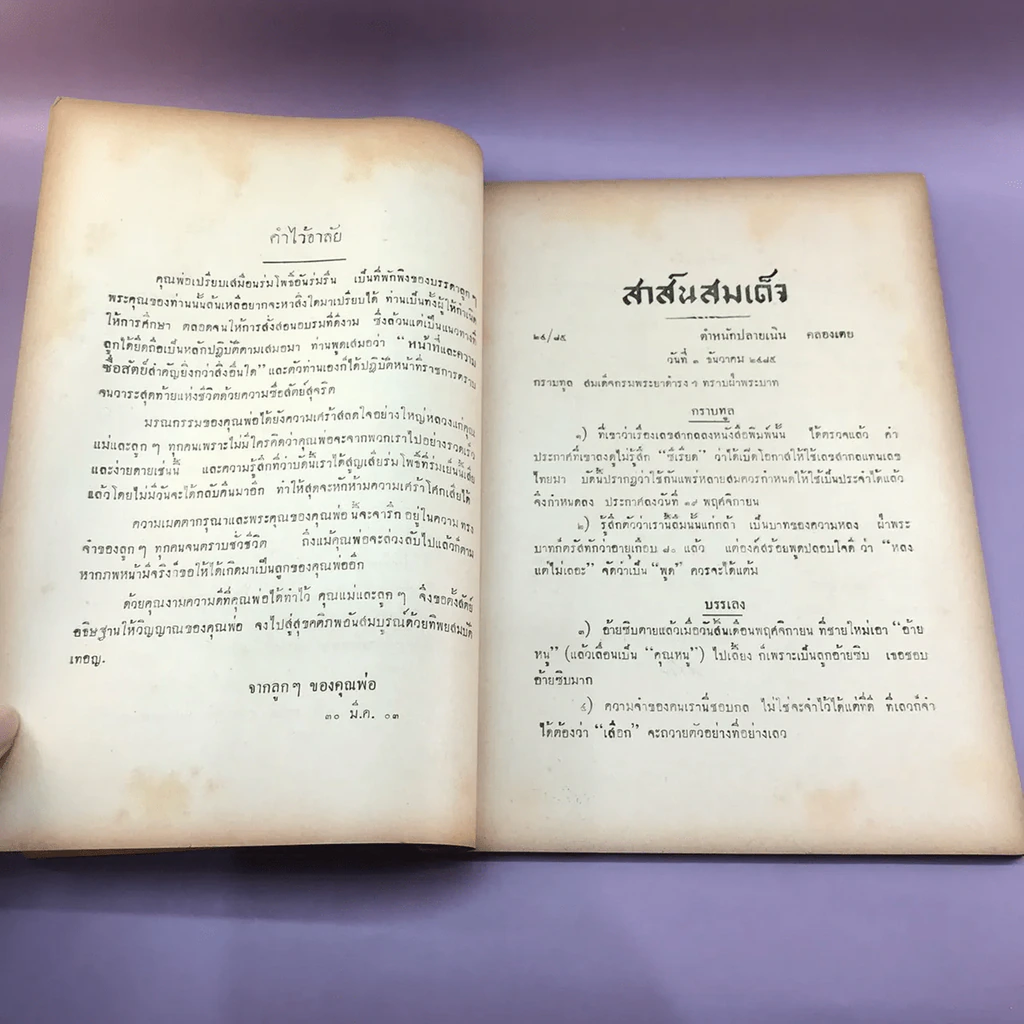 คำไว้อาลัย
คุณพ่อเปรียบเสมือนร่มโพธิ์อันร่มรื่น เป็นที่พักพิงของบรรดาลูก ๆ
พระคุณของท่านนั้นล้นเหลือยากจะหาสิ่งใดมาเปรียบได้ ท่านเป็นทั้งผู้ให้กำเนิด
ให้การศึกษา ตลอดจนให้การสั่งสอนอบรมที่ดีงาม ซึ่งล้วนแต่เป็นแนวทางที่
ลูกได้ยึดถือเป็นหลักปฏิบัติตามเสมอมา ท่านพูดเสมอว่า “หน้าที่และความ
ซื่อสัตย์สำคัญยิ่งกว่าสิ่งอื่นใด” และตัวท่านเองก็ได้ปฏิบัติหน้าที่ราชการตราบ
จนวาระสุดท้ายแห่งชีวิตด้วยความซื่อสัตย์สุจริต
มรณกรรมของคุณพ่อได้ยังความเศร้าสลดใจอย่างใหญ่หลวงแก่คุณ
แม่และลูก ๆ ทุกคนเพราะไม่มีใครคิดว่าคุณพ่อจะจากพวกเราไปอย่างรวดเร็ว
และง่ายดายเช่นนี้ และความรู้สึกที่ว่าบัดนี้เราได้สูญเสียร่มโพธิ์ที่ร่มเย็นนั้นเสีย
แล้วโดยไม่มีวันจะได้กลับคืนมาอีก ทำให้สุดจะหักห้ามความเศร้าโศกเสียได้
ความเมตตากรุณาและพระคุณของคุณพ่อ นี้จะจารึก อยู่ในความ ทรง
จำของลูก ๆ ทุกคนจนตราบชั่วชีวิต ถึงแม้คุณพ่อจะล่วงลับไปแล้วก็ตาม
หากภพหน้ามีจริงก็ขอให้ได้เกิดมาเป็นลูกของคุณพ่ออีก
ด้วยคุณงามความดีที่คุณพ่อได้ทำไว้ คุณแม่และลูก ๆ จึงขอตั้งสัตย์
อธิษฐานให้วิญญาณของคุณพ่อ จงไปสู่สุขคติภพอันสมบูรณ์ด้วยทิพยสมบัติ
เทอญ.
จากลูก ๆ ของคุณพ่อ
๓๐ มี.ค. ๐๓
สาส์นสมเด็จ
๒๔/๘๕ ตำหนักปลายเนิน คลองเตย
วันที่ ๓ ธันวาคม ๒๔๘๕
กราบทูล สมเด็จกรมพระยาดำรง ฯ ทราบฝ่าพระบาท
กราบทูล
๑) ที่เขาว่าเรื่องเลขสากลลงหนังสือพิมพ์นั้น ได้ตรวจแล้ว คำ
ประกาศที่เขาลงดูไม่รู้สึก “ซีเรียด” ว่าได้เปิดโอกาสให้ใช้เลขสากลแทนเลข
ไทยมา บัดนี้ปรากฏว่าใช้กันแพร่หลายสมควรกำหนดให้ใช้เป็นประจำได้แล้ว
จึงกำหนดลง ประกาศลงวันที่ ๑๙ พฤศจิกายน
๒) รู้สึกตัวว่าเรานี้ลืมนั้นแก่กล้า เป็นบาทของความหลง ฝ่าพระ
บาทก็ตรัสทักว่าอายุเกือบ ๘๐ แล้ว แต่องค์สร้อยพูดปลอบใจดี ว่า “หลง
แต่ไม่เถอะ” จัดว่าเป็น “พูด” ควรจะได้แต้ม
บรรเลง
๓) อ้ายซิบตายแล้วเมื่อวันสิ้นเดือนพฤศจิกายน ที่ชายใหม่เอา “อ้าย
หนู” (แล้วเลื่อนเป็น “คุณหนู”) ไปเลี้ยง ก็เพราะเป็นลูกอ้ายซิบ เขอชอบ
อ้ายซิบมาก
๔) ความจำของคนเรานี้ชอบกล ไม่ใช่จะจำไว้ได้แต่ที่ดี ที่เลวก็จำ
ได้ต้องว่า “เลือก” จะถวายตัวอย่างที่อย่างเลว